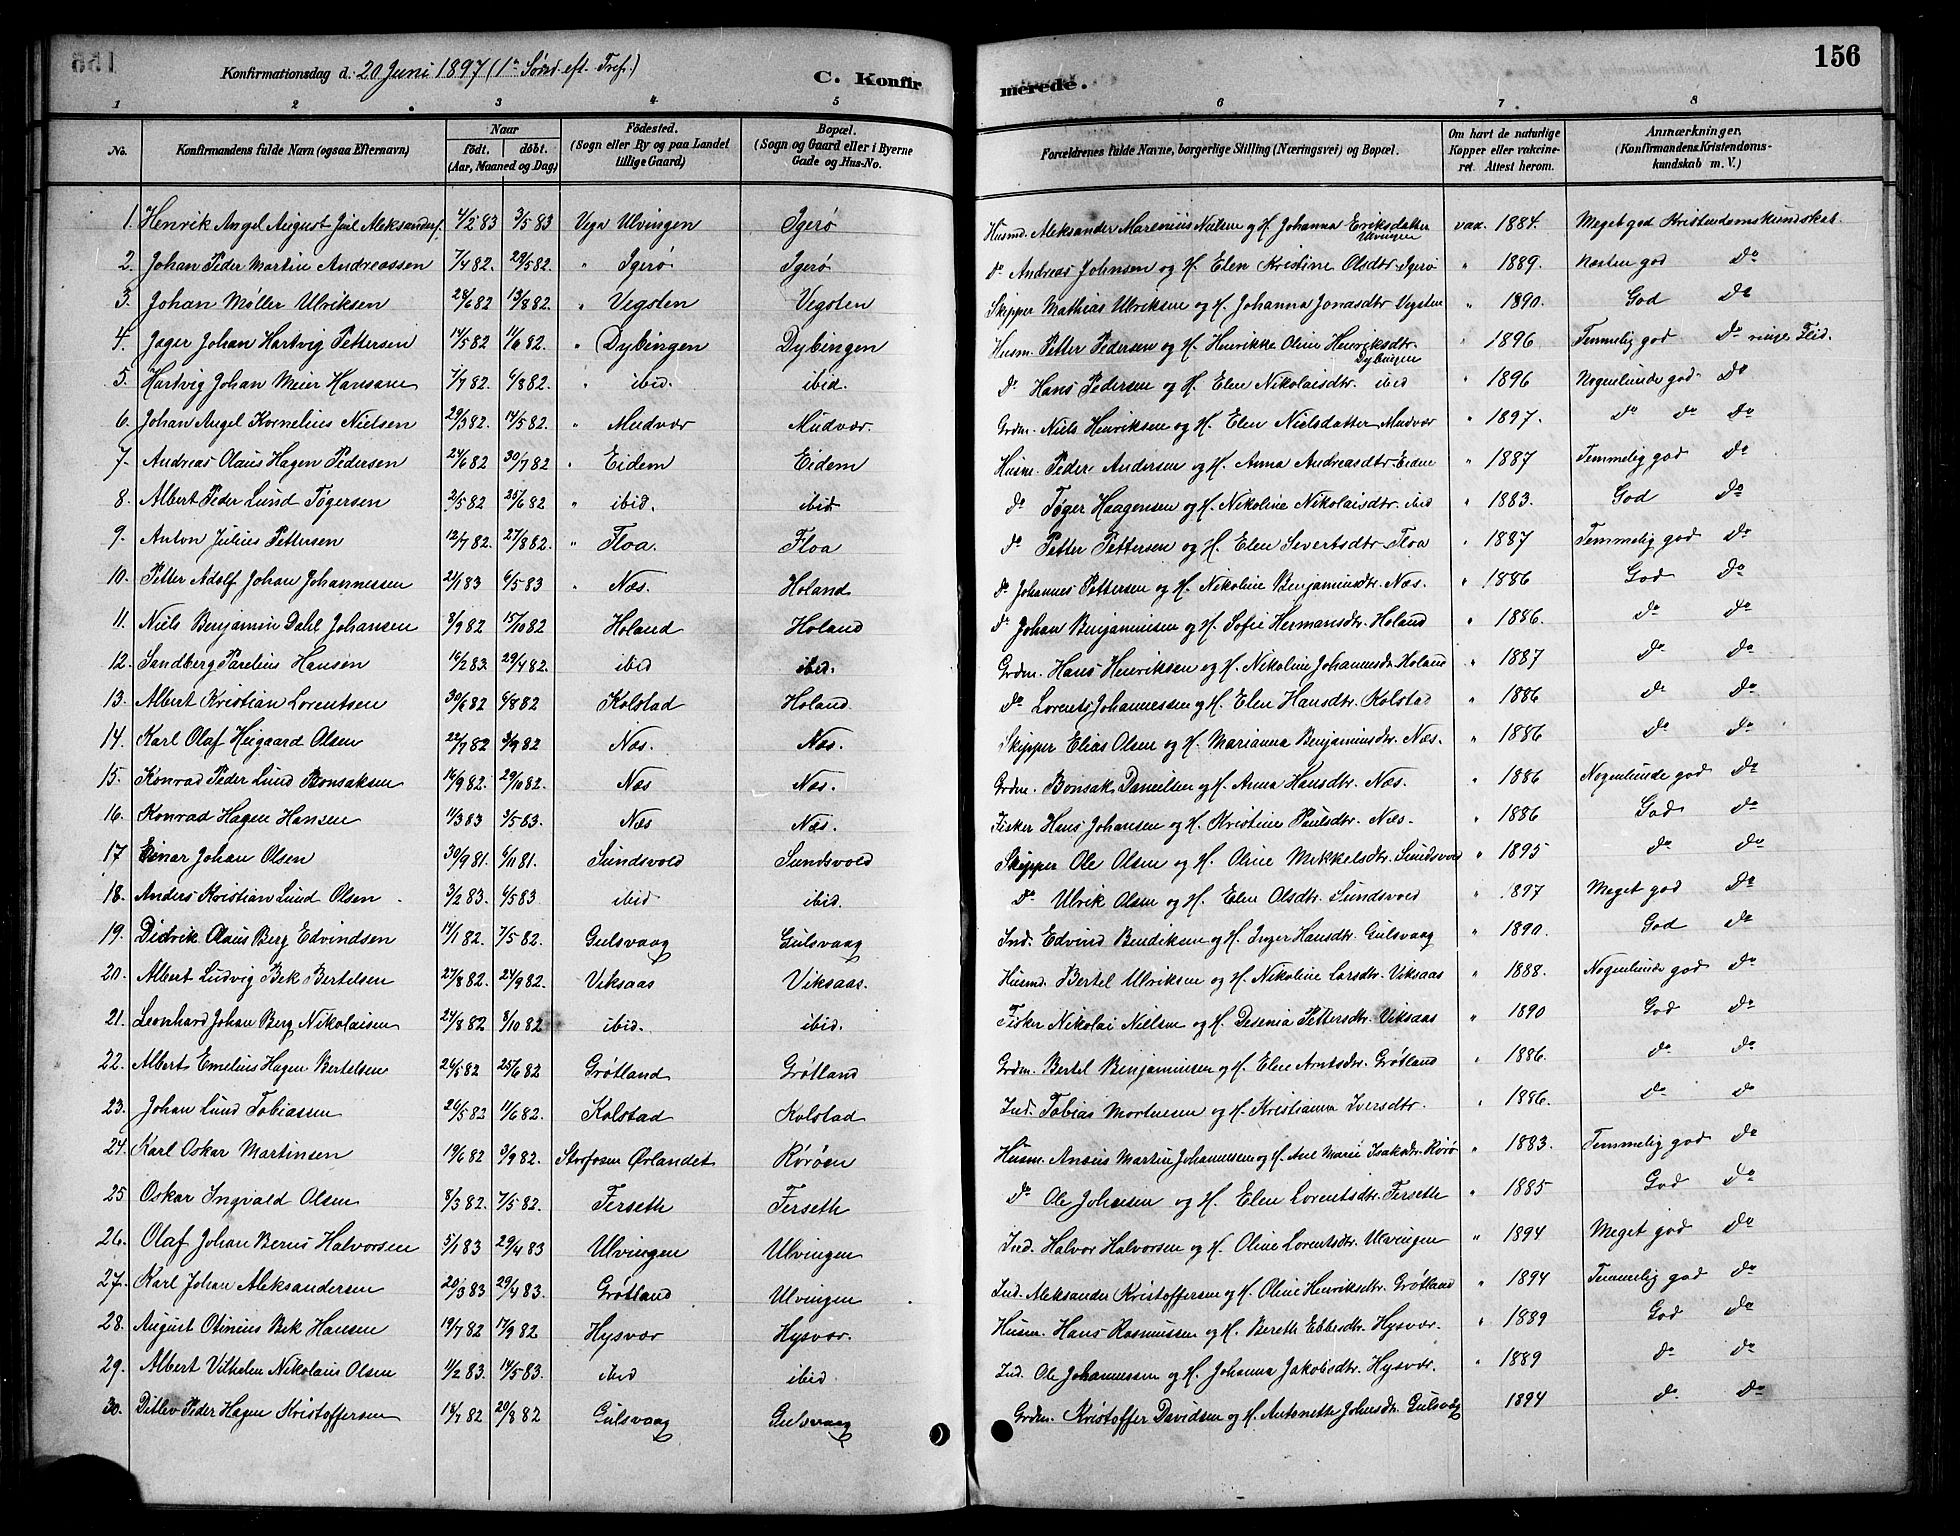 Konfirmationsdag d. 20 Juni 1897 (1ste Sønd. eft. Tref.)
C. Konfirmerede. 156
1 2 3 4 5 6 7 8
No. Konfirmandens fulde Navn (ogsaa Efternavn) Naar født. døbt. (Aar, Maaned og Dag) Fødested. (Sogn eller By og paa Landet tillige Gaard) Bopæl. (Sogn og Gaard eller i Byerne Gade og Hus-No. Forældrenes fulde Navne, borgerlige Stilling (Næringsvei) og Bopæl. Om havt de naturlige Kopper eller vakcineret. Attest herom. Anmærkninger, (Konfirmandens Kristendomskundskab m. V.)
1. Henrik Angel August Juil Aleksanders. 4/2 83 3/5 83 Vega Ulvingen Igerø Husmd. Aleksander Marenius Nielsen og H. Johanna Eriksdatter Ulvingen vax. 1884. Meget god Kristendomskundskab.
2. Johan Peder Martin Andreassen 7/4 82. 29/5 82. " Igerø Igerø do Andreas Johnsen og H. Elen Kristine Olsdtr. Igerø " 1889. Næsten god do
3. Johan Møller Ulriksen 28/6 82 13/8 82. " Vegsten Vegsten Skipper Mathias Ulriksen og H. Johanna Jonasdtr Vegsten " 1890. God do
4. Jager Johan Hartvig Pettersen 14/5 82 11/6 82. " Dybingen Dybingen Husm. Petter Pedersen og H. Henrikke Oline Henriksdtr. Dybingen " 1896 Temmelig god do ringe Flid.
5. Hartvig Johan Meier Hansen 7/7 82. 6/8 82. " ibid. ibid. do Hans Pedersen og H. Elen Nikolaisdtr. ibid " 1896 Nogenlunde god do
6. Johan Angel Kornelius Nielsen 29/3 82. 14/5 82. " Mudvær Mudvær. Grdm. Niels Henriksen og H. Elen Nielsdatter Mudvær " 1897. do do do
7. Andreas Olaus Hagen Pedersen 24/6 82 30/7 82 " Eidem Eidem Husm. Peder Andersen og H. Anna Andreasdtr. Eidem " 1887 Temmelig god do
8. Albert Peder Lund Tøgersen 2/5 82 25/6 82 " ibid. ibid do Tøger Haagensen og H. Nikoline Nikolaisdtr. ibid " 1883. God do
9. Anton Julius Pettersen 12/7 82. 27/8 82. " Floa. Floa do Petter Pettersen og H. Elen Severtsdtr. Floa " 1887 Temmelig god do
10. Petter Adolf Johan Johannesen 24/1 83 6/5 83 " Næs. Holand do Johannes Pettersen og H. Nikoline Benjaminsdtr. Næs. " 1886 God do
11. Niels Benjamin Dahl Johansen 8/9 82 15/10 82 Holand Holand do Johan Benjaminsen og H. Sofie Hermansdtr. Holand " 1886. do do
12. Sandberg Parelius Hansen 16/2 83. 29/4 82. ibid ibid. Grdm. Hans Henriksen og H. Nikoline Johannesdtr Holand " 1887 do do
13. Albert Kristian Lorentsen 30/6 82 6/8 82 Kolstad Holand do Lorents Johannessen og H. Elen Hansdtr. Kolstad " 1886 do do
14. Karl Olaf Heigaard Olsen 22/7 82 3/9 82 Næs. Næs. Skipper Elias Olsen og H. Marianna Benjaminsdtr. Næs. " 1886 do do
15. Konrad Peder Lund Bonsaksen 16/9 82. 29/10 82. Næs Næs. Grdm. Bonsak Danielsen og H. Anna Hansdtr. Næs. " 1886 Nogenlunde god do
16. Konrad Hagen Hansen 11/3 83 3/5 83. Næs Næs. Fisker Hans Johansen og H. Kristine Paulsdtr. Næs. " 1886 God do
17 Einar Johan Olsen 30/9 81. 6/11 81. Sundsvold Sundsvold Skipper Ole Olsen og H. Oline Mikkelsdtr. Sundsvold " 1895 do do
18. Anders Kristian Lund Olsen 3/2 83. 6/5 83 ibid ibid. do Ulrik Olsen og H. Elen Olsdtr. Sundsvold " 1897 Meget god do
19. Didrik Olaus Berg Edvindsen 14/1 82. 7/5 82. Gulsvaag Gulsvaag Ind. Edvind Bendiksen og H. Inger Hansdtr. Gulsvaag " 1890. God do
20. Albert Ludvig Bek Bertelsen 27/8 82 24/9 82. Viksaas Viksaas. Husmd. Bertel Ulriksen og H. Nikoline Larsdtr. Viksaas " 1888. Nogenlunde god do
21. Leonhard Johan Berg Nikolaisen 24/8 82 8/10 82 ibid. ibid. Fisker Nikolai Nielsen og H. Desenia Pettersdtr. Viksaas " 1890 God do
22. Albert Emelius Hagen Bertelsen 26/5 82 25/6 82 Grøtland Grøtland Grdm. Bertel Benjaminsen og H. Elen Arntsdtr. Grøtland " 1886. do do
23. Johan Lund Tobiassen 26/5 82 11/6 82. Kolstad Kolstad Ind. Tobias Mortensen og H. Kristianna Iversdtr. " 1886. do do
24. Karl Oskar Martinsen 19/6 82 3/9 82. Storfosen Ørlandet Rørøen Husm. Ansius Martin Johannesen og H. Ane Marie Isaksdtr. Rørø " 1883. Temmelig god do
25 Oskar Ingvald Olsen 8/3 82. 7/5 82. Ferseth Ferseth do Ole Johnsen og H. Elen Lorentsdtr. Ferseth " 1885 God do
26. Olaf Johan Berus Halvorsen 5/1 83 29/4 83 Ulvingen Ulvingen Ind. Halvor Halvorsen og H. Oline Lorentsdtr. Ulvingen " 1894 Meget god do
27. Karl Johan Aleksandersen 20/3 83 29/4 83. Grøtland Ulvingen Ind. Aleksander Kristoffersen og H. Oline Henriksdtr. Grøtland " 1894 Temmelig god do
28. August Otinius Bek Hansen 19/7 82 17/9 82 Hysvær Hysvær. Husm. Hans Rasmussen og H. Bereth Ebbesdtr. Hysvær. " 1889 God do
29. Albert Vilhelm Nikolaus Olsen 11/2 83. 14/5 83. ibid ibid. Ind. Ole Johannessen og H. Johanna Jakobsdtr. Hysvær. " 1889 do do
30. Ditlev Peder Hagen Kristoffersen 18/7 82 20/8 82 Gulsvaag Gulsvaag Grdm. Kristoffer Davidsen og H. Antonette Johnsdtr. Gulsvåg 1894 do. do